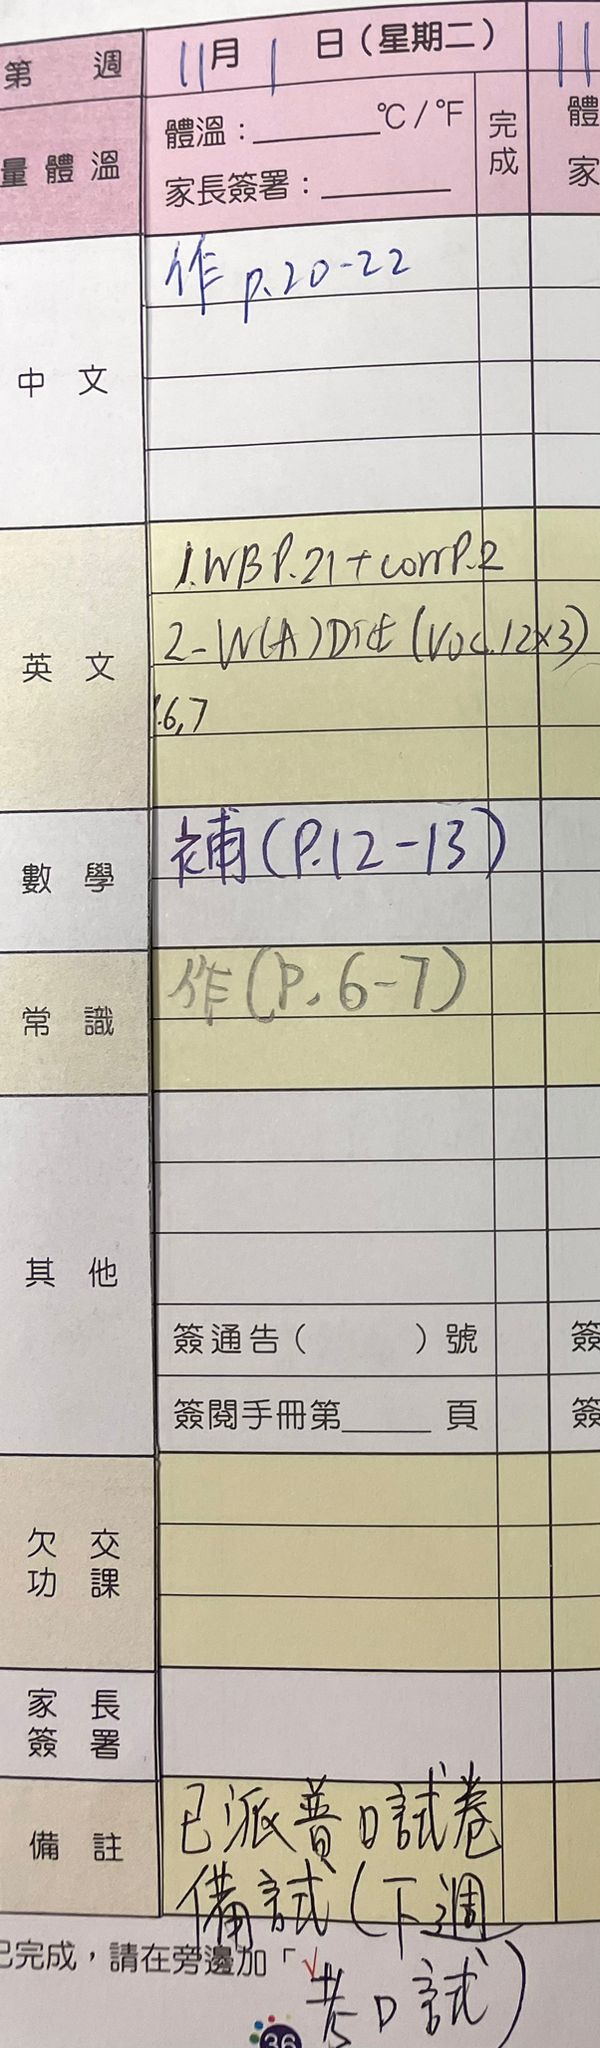 第 週 11月 1 日（星期二） 11
量體溫 體溫：______°C/°F 完成 體
家長簽署：______ 家
中文 作 p.20-22
英文 1.WB P.21+corr P.2
2-W(A)Dict (Voc.12x3)
6,7
數學 補(P.12-13)
常識 作(P.6-7)
其他
簽通告（ ）號 簽
簽閱手冊第_____頁 簽
欠交功課
家長簽署
備註 已派普口試卷
備試(下週
考口試)
已完成，請在旁邊加「✓
36